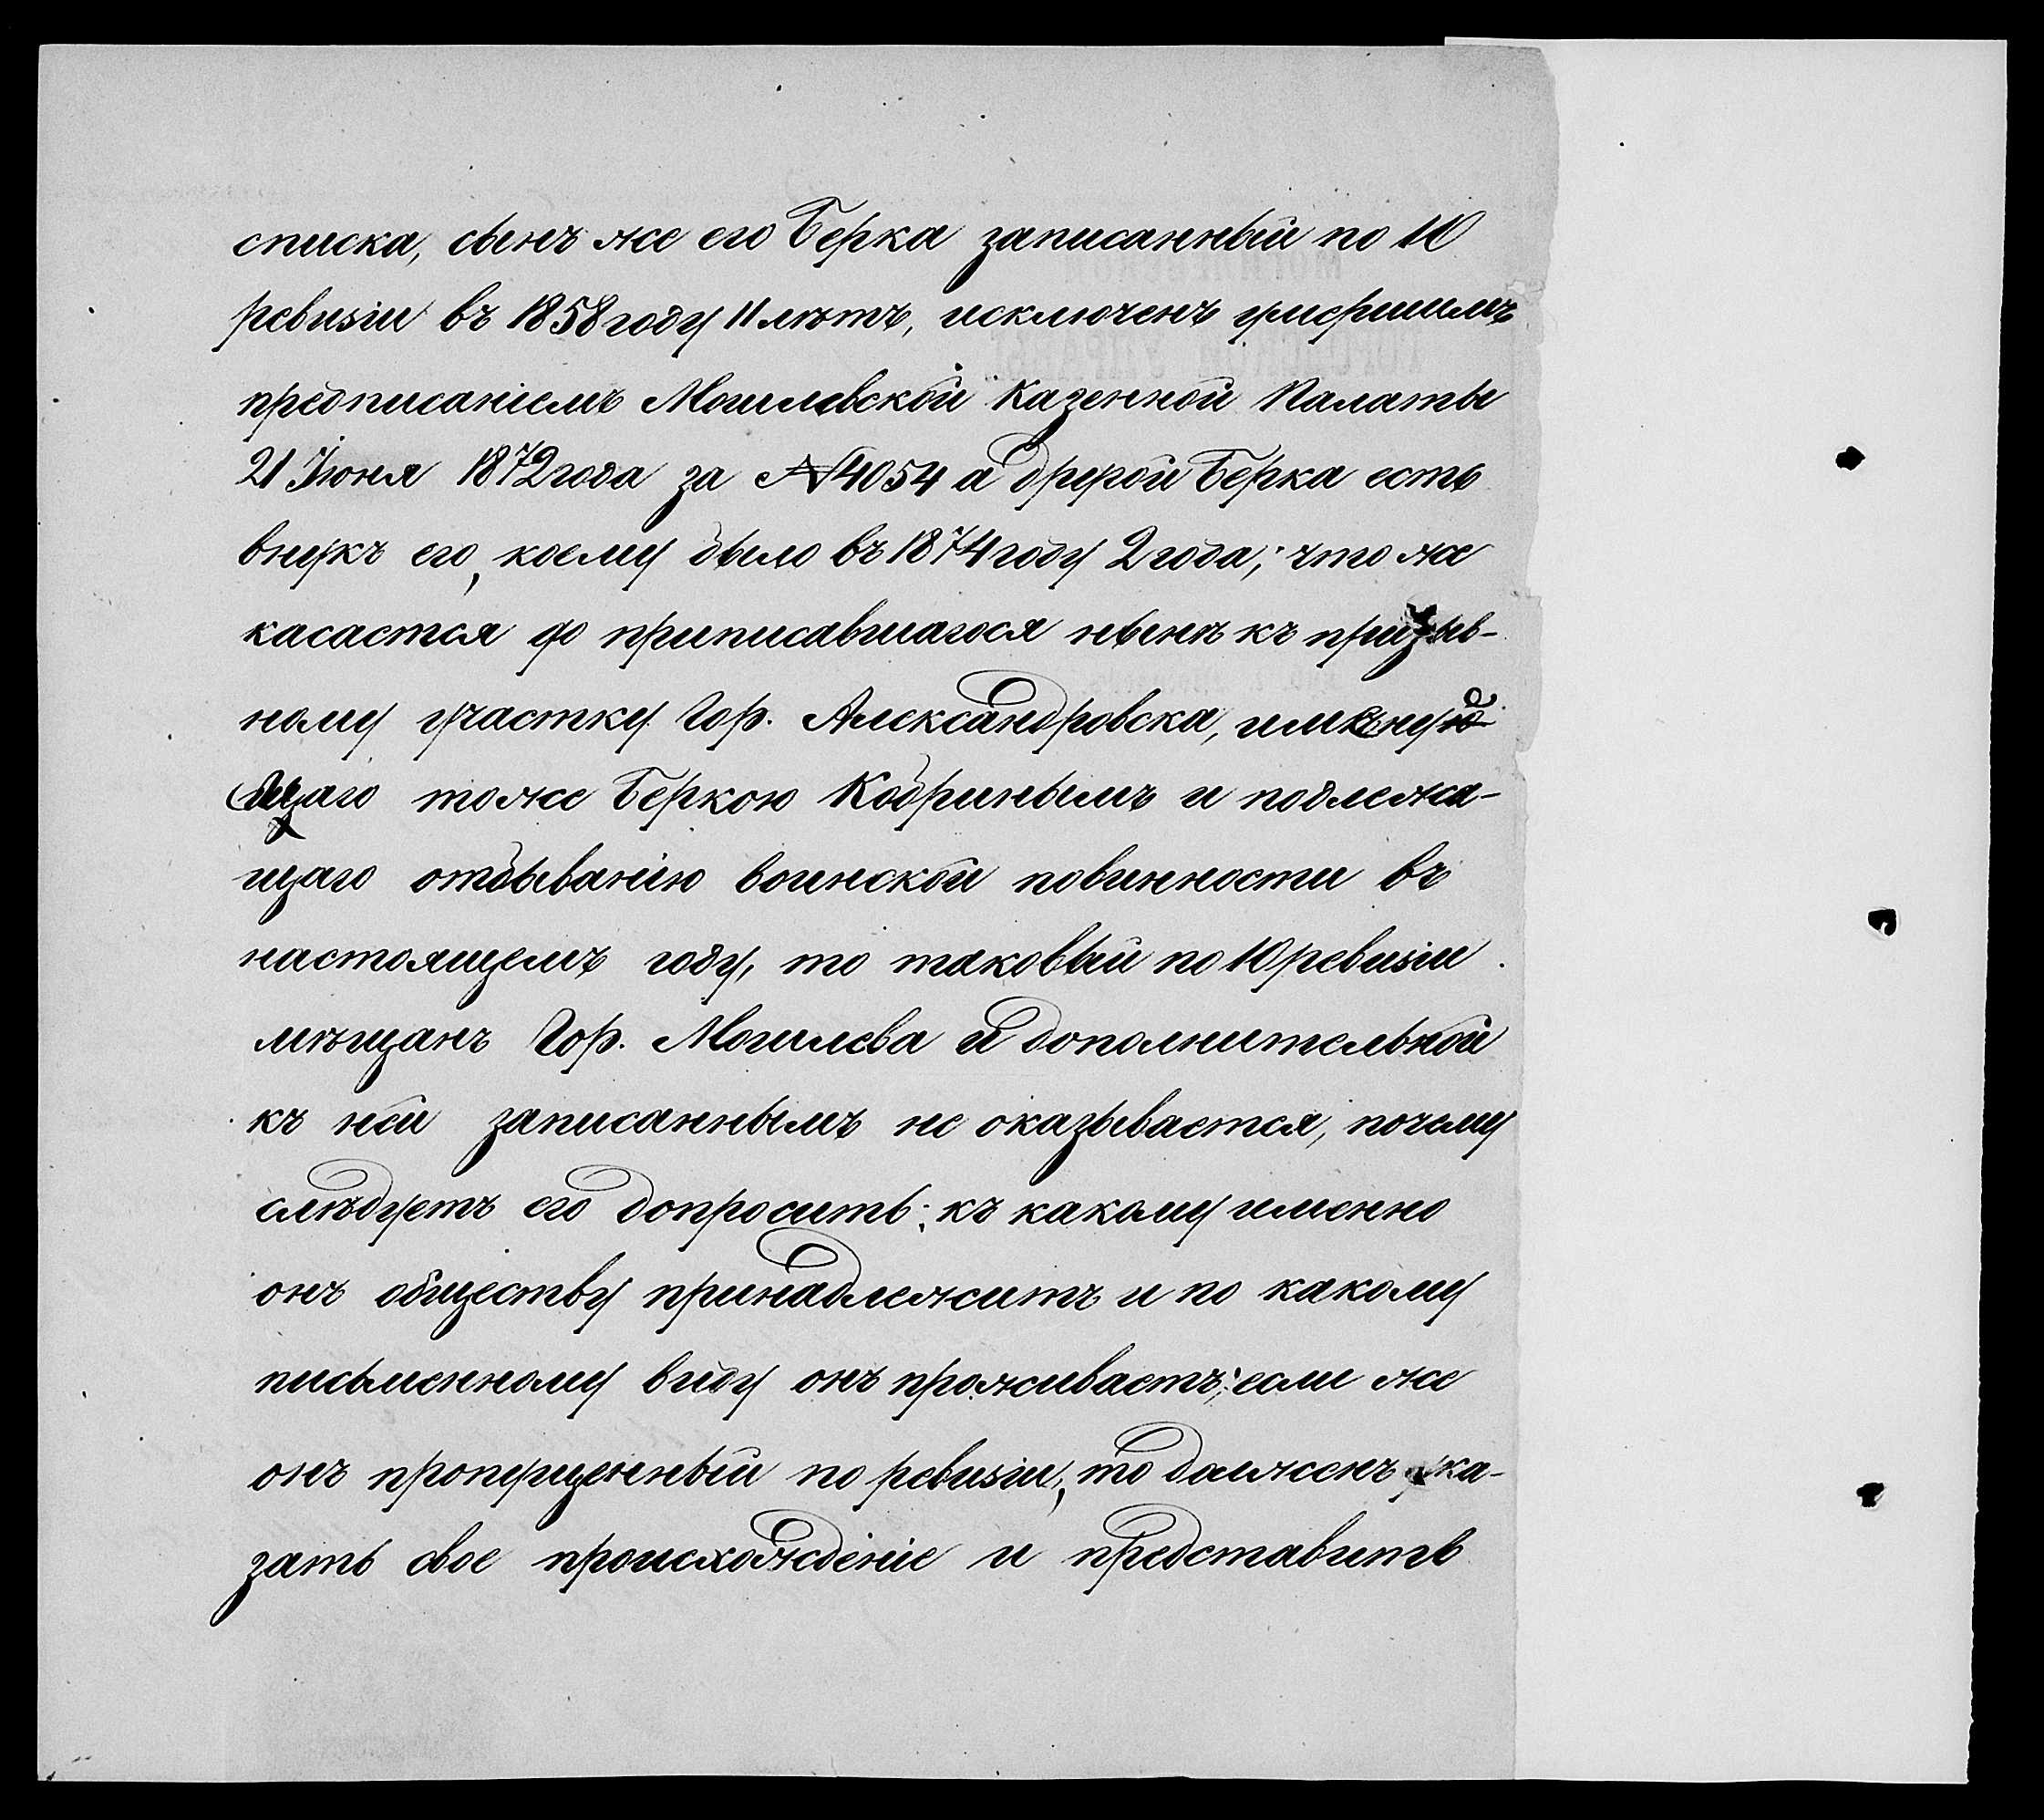 списка, сынъ же его Берка записанный по 10
ревизіи въ 1858 году 11 лѣтъ, исключенъ умершимъ
предписаніемъ Могилевской Казенной Палаты
21 Іюня 1872 года за № 4054 а другой Берка есть
внукъ его, коему было въ 1874 году 2 года; что же
касается до приписавшагося нынѣ къ призыв-
ному участку Гор. Александровска, именуе
маго тоже Беркою Кобринымъ и подлежа-
щаго отбыванію воинской повинности въ
настоящемъ году, то таковый по 10 ревизіи
мѣщанъ Гор. Могилева и дополнительной
къ ней записаннымъ не оказывается, почему
слѣдуетъ его допросить: къ какому именно
онъ обществу принадлежитъ и по какому
письменному виду онъ проживаетъ; если же
онъ пропущенный по ревизіи, то долженъ ука-
зать свое происхожденіе и представить